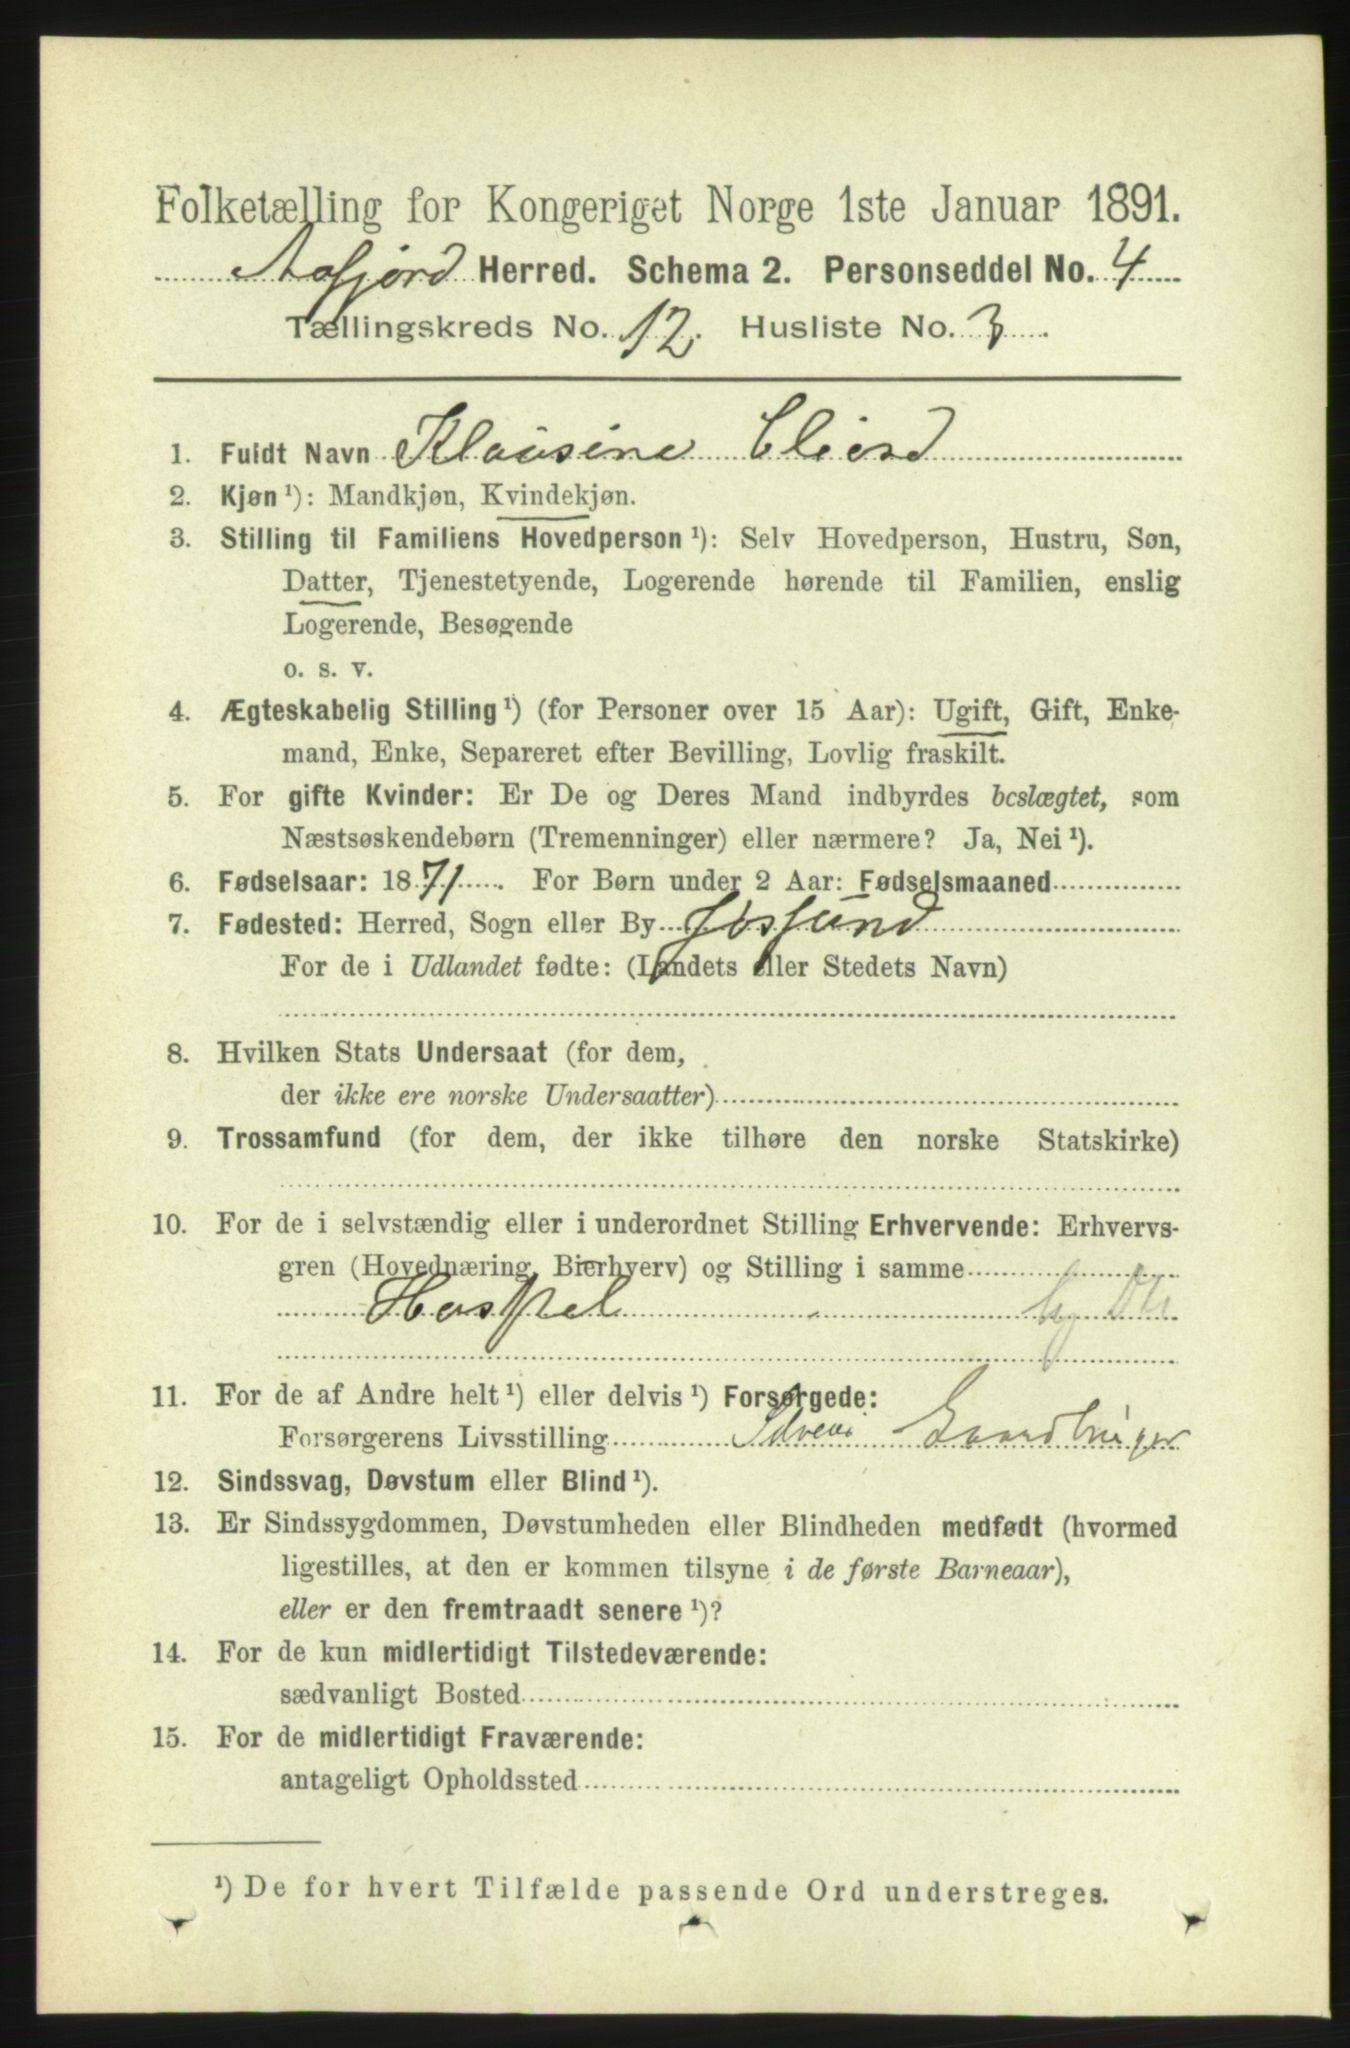 Folketælling for Kongeriget Norge 1ste Januar 1891.
Aafjord Herred. Schema 2. Personseddel No. 4
Tællingskreds No. 12. Husliste No. 3.
1. Fuldt Navn Klausine
2. Kjøn ¹): Mandkjøn, Kvindekjøn.
3. Stilling til Familiens Hovedperson ¹): Selv Hovedperson, Hustru, Søn,
Datter, Tjenestetyende, Logerende hørende til Familien, enslig
Logerende, Besøgende
o. s. v.
4. Ægteskabelig Stilling ¹) (for Personer over 15 Aar): Ugift, Gift, Enke-
mand, Enke, Separeret efter Bevilling, Lovlig fraskilt.
5. For gifte Kvinder: Er De og Deres Mand indbyrdes beslægtet, som
Næstsøskendebørn (Tremenninger) eller nærmere? Ja, Nei ¹).
6. Fødselsaar: 1871. For Børn under 2 Aar: Fødselsmaaned
7. Fødested: Herred, Sogn eller By Jøssund
For de i Udlandet fødte: (Landets eller Stedets Navn)
8. Hvilken Stats Undersaat (for dem,
der ikke ere norske Undersaatter)
9. Trossamfund (for dem, der ikke tilhøre den norske Statskirke)
10. For de i selvstændig eller i underordnet Stilling Erhvervende: Erhvervs-
gren (Hovednæring, Bierhverv) og Stilling i samme
11. For de af Andre helt ¹) eller delvis ¹) Forsørgede:
Forsørgerens Livsstilling Gaardbruger
12. Sindssvag, Døvstum eller Blind ¹).
13. Er Sindssygdommen, Døvstumheden eller Blindheden medfødt (hvormed
ligestilles, at den er kommen tilsyne i de første Barneaar),
eller er den fremtraadt senere ¹)?
14. For de kun midlertidigt Tilstedeværende:
sædvanligt Bosted
15. For de midlertidigt Fraværende:
antageligt Opholdssted
¹) De for hvert Tilfælde passende Ord understreges.